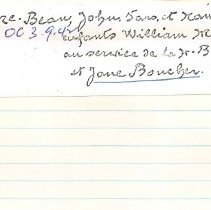 re. Bean, John, Sara, et
OC 3-9-
enfants William
au service de la
et Jane Boucher.